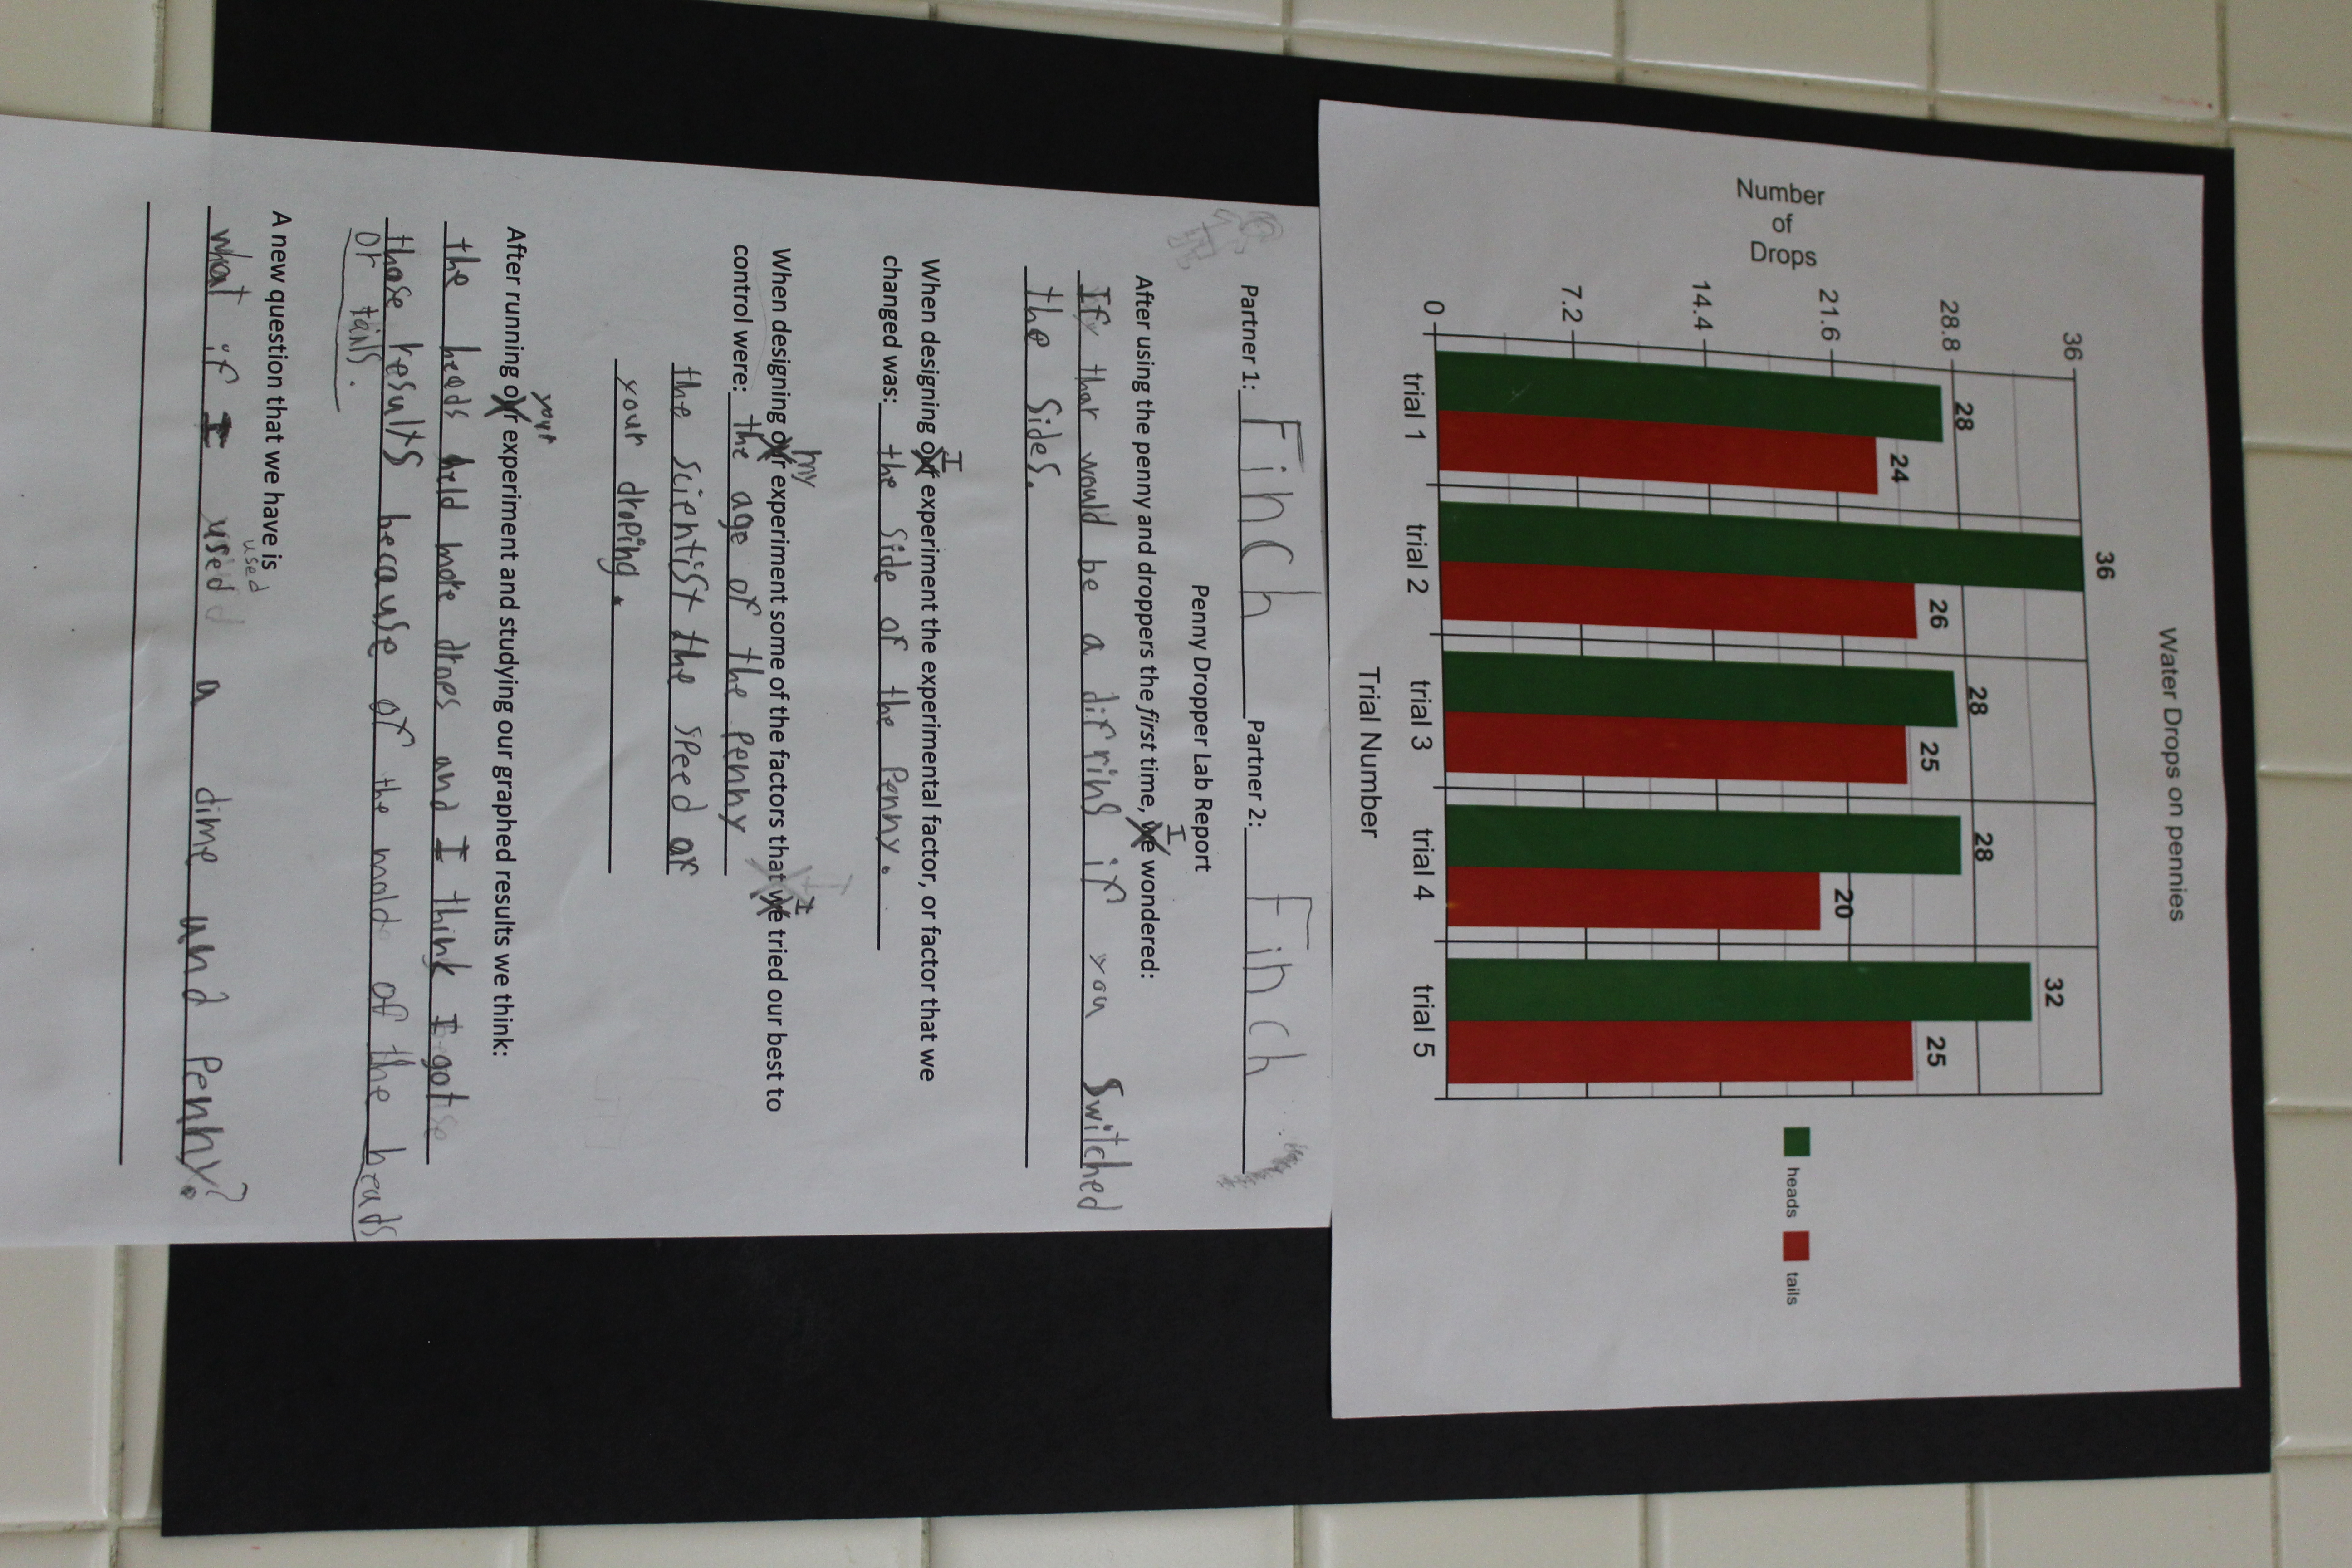 Water Drops on pennies
Number
of
Drops
36
28.8
21.6
14.4
7.2
0
28
24
36
26
28
25
28
20
32
25
trial 1
trial 2
trial 3
trial 4
trial 5
Trial Number
heads
tails
Partner 1: Finch Partner 2: Finch
Penny Dropper Lab Report
After using the penny and droppers the first time, we I wondered:
If thar would be a difrins if you Switched
the sides.
When designing our I experiment the experimental factor, or factor that we
changed was: the side of the penny.
When designing our my experiment some of the factors that we I tried our best to
control were: the age of the penny
the scientist the speed of
your droping.
After running our your experiment and studying our graphed results we think:
the heads held more drops and I think I got
those results because of the mold of the heads
or tails.
A new question that we have is
used
what if I used a dime and penny?